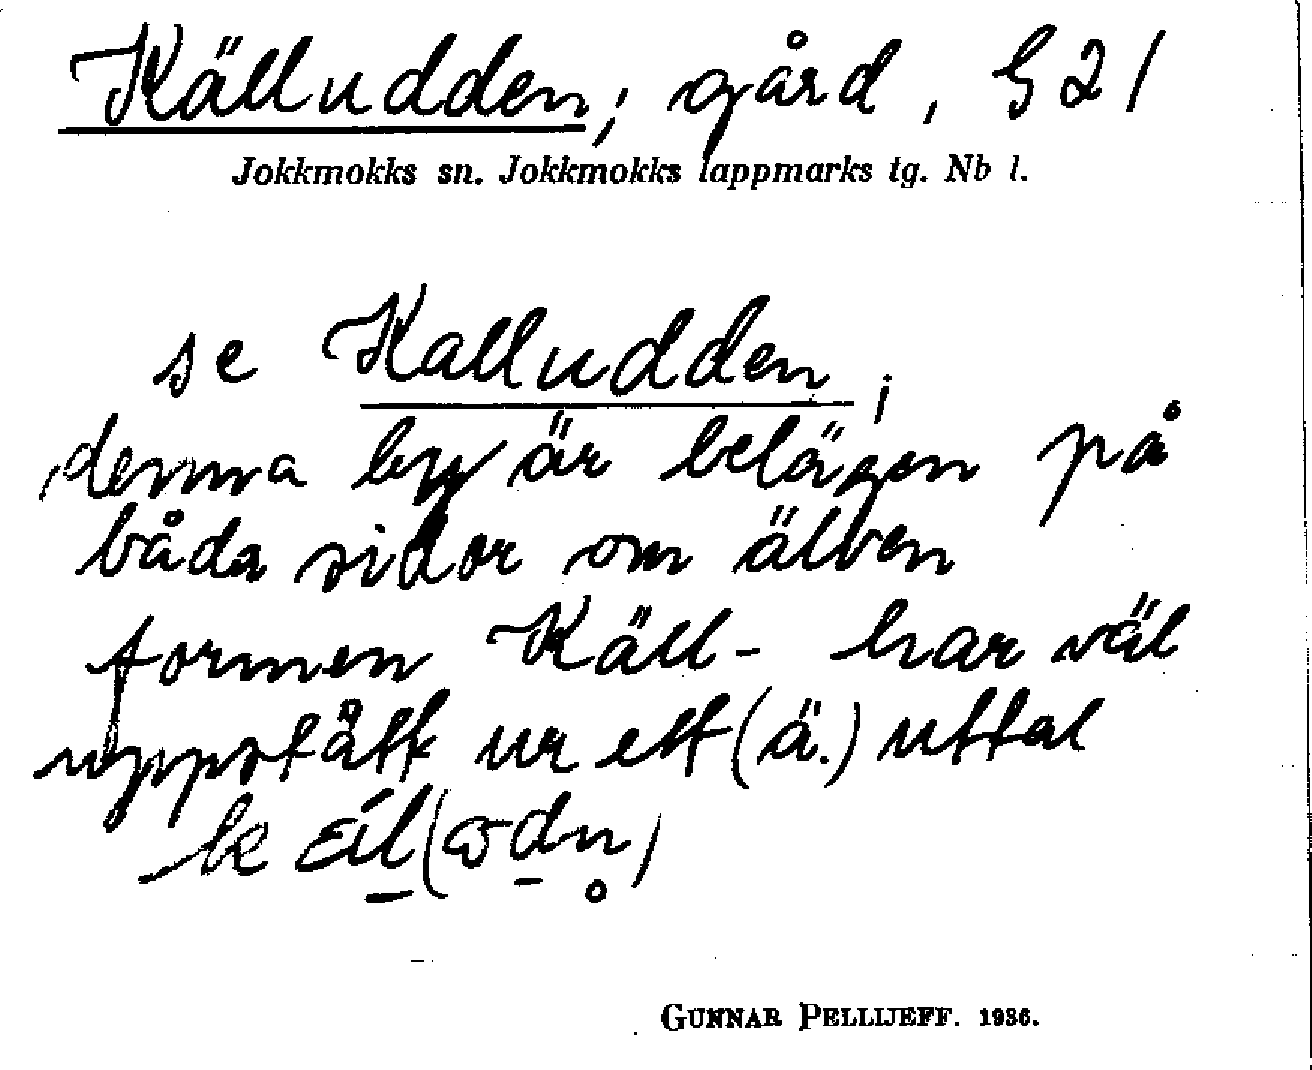 Källudden; gård, G21
Jokkmokks sn. Jokkmokks lappmarks tg. Nb l.
se Kalludden;
denna by är belägen på
båda sidor om älven
formen Käll- har väl
uppstått ur ett (ä.) uttal
GUNNAR PELLIJEFF. 1936.